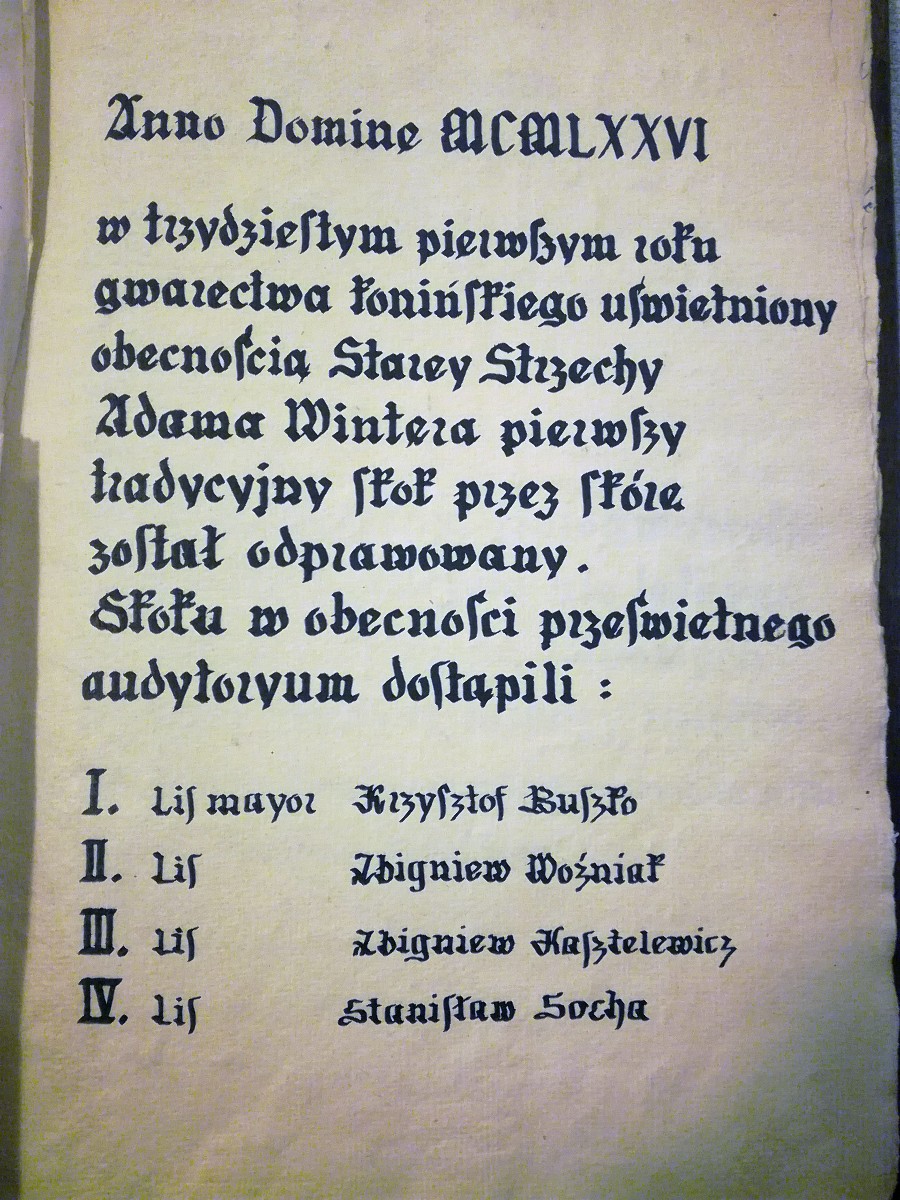 Anno Domine MCMLXXVI
w trzydziestym pierwszym roku
gwarectwa konińskiego uświetniony
obecnością Starey Strzechy
Adama Wintera pierwszy
tradycyjny skok przez skórę
został odprawowany.
Skoku w obecności prześwietnego
audytoryum dostąpili :
I. Lis mayor Krzysztof Buszko
II. Lis Zbigniew Woźniak
III. Lis Zbigniew Kasztelewicz
IV. Lis Stanisław Socha